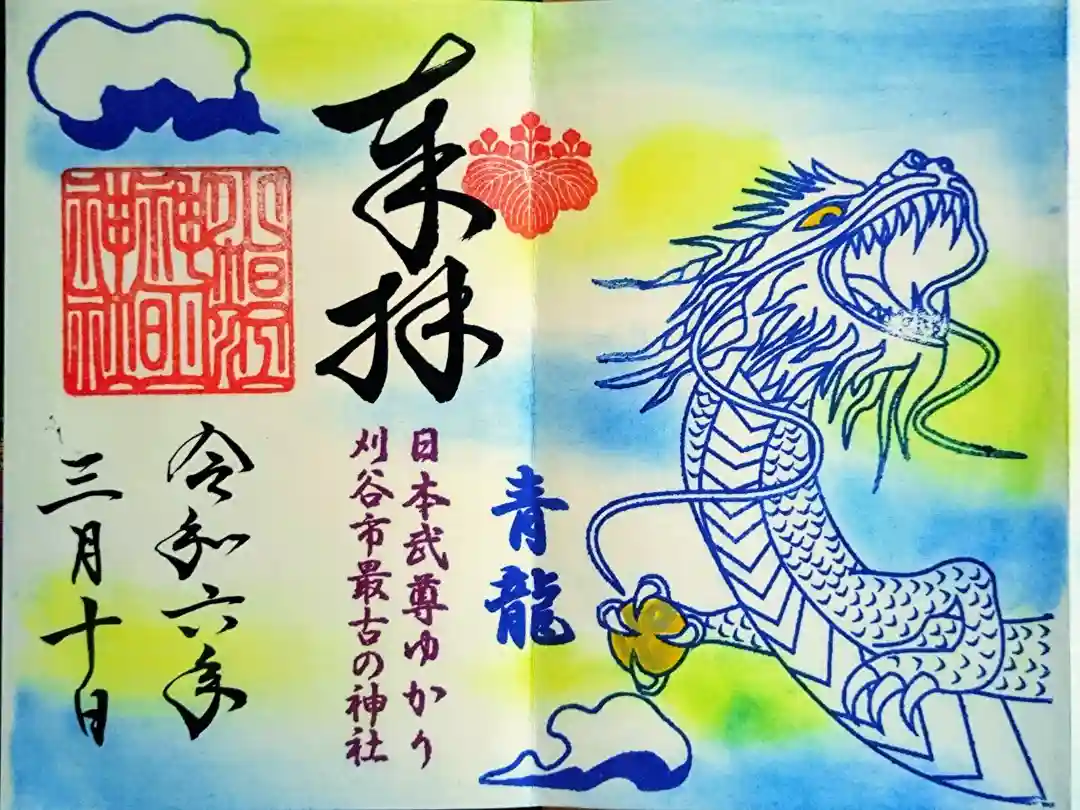 青龍
奉拝
日本武尊ゆかり
刈谷市最古の神社
小垣江
神明
神社
令和六年
三月十日